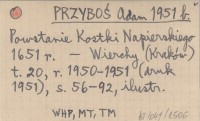 PRZYBOŚ Adam 1951 b.
Powstanie Kostki Napierskiego
1651 r. — Wierchy (Kraków)
t. 20, r. 1950-1951 (druk
1951), s. 56-92, ilustr.
WHP, MT, TM